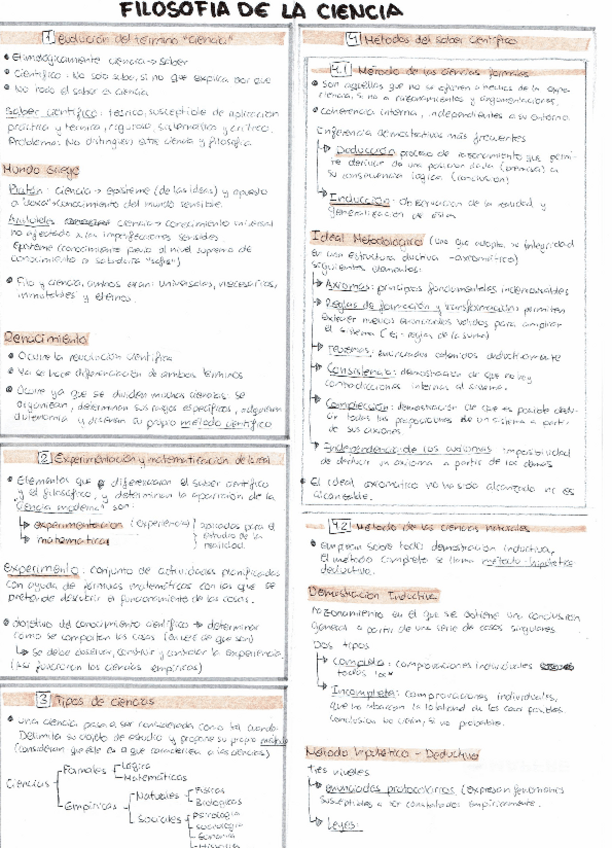 FILOSOFIA DE LA CIENCIA
1 Evolución del término "ciencia"
• Etimológicamente ciencia → saber
• Científico: No solo saber, si no que explica por que
• No todo el saber es ciencia
Saber científico: teórico, susceptible de aplicación
práctica y técnica, riguroso, sistemático y crítico.
Problema: No distingue entre ciencia y filosofía.
Mundo Griego
Platón: ciencia → episteme (de las ideas) y opuesto
a "doxa" → conocimiento del mundo sensible.
Aristóteles ciencia → conocimiento universal
no afectado x las imperfecciones sensibles
Episteme (conocimiento previo al nivel supremo de
conocimiento o sabiduría "sofía")
• Filo y ciencia, ambos eran: universales, necesarios,
inmutables y eternos.
Renacimiento
• Ocurre la revolución científica
• Ya se hace diferenciación de ambos términos
• Ocurre ya que se dividen muchas ciencias: se
organizan, determinan sus rasgos específicos, adquieren
autonomía y diseñan su propio método científico
2 Experimentación y matematización de lo real
• Elementos que diferencian el saber científico
y el filosófico, y determinan la aparición de la
"ciencia moderna" son:
↳ experimentación (experiencia) } aplicadas para el
↳ matemática } estudio de la
realidad.
Experimento: conjunto de actividades planificadas
con ayuda de términos matemáticos con las que se
pretende descubrir el funcionamiento de las cosas.
• Objetivo del conocimiento científico → determinar
como se comportan las cosas
↳ Se debe observar, construir y controlar la experiencia.
(Así funcionan las ciencias empíricas)
3 Tipos de ciencias
• Una ciencia pasa a ser considerada como tal cuando:
Delimita su objeto de estudio y propone su propio método
Ciencias
Formales
Lógica
Matemáticas
Empíricas
Naturales
Físicas
Biológicas
Sociales
Psicología
Sociología
Economía
Historia
4 Métodos del saber científico
4.1 Método de las ciencias formales
• Son aquellas que no se refieren a hechos de la
ciencia, si no a razonamientos y argumentaciones.
• Coherencia interna, independientes a su entorno.
Inferencia demostrativas más frecuentes
↳ Deducción proceso de razonamiento que permi-
te derivar de una posición dada (premisa) a
su consecuencia lógica (conclusión)
↳ Inducción: observación de la realidad y
generalización de
Ideal Metodológico (una que adopta se integridad
en una estructura deductiva - axiomática)
siguientes elementos:
↳ Axiomas: principios fundamentales indemostrables
↳ Reglas de formación y transformación: permiten
extraer nuevos enunciados válidos para ampliar
el sistema (Ej: reglas de la suma)
↳ Teoremas: enunciados obtenidos deductivamente
↳ Consistencia: demostración de que no hay
contradicciones internas al sistema.
↳ Compleción: demostración de que es posible dedu-
cir todas las proposiciones de un sistema a partir
de sus axiomas.
↳ Independencia de los axiomas: imposibilidad
de deducir un axioma a partir de los demás
• El ideal axiomático no ha sido alcanzado ni es
alcanzable.
4.2 Método de las ciencias naturales
• Emplean sobre todo demostración inductiva,
El método completo se llama método hipotético
deductivo.
Demostración Inductiva
razonamiento en el que se obtiene una conclusión
general a partir de una serie de casos singulares
Dos tipos
↳ Completa: comprovaciones individuales
todos los
↳ Incompleta: comprovaciones individuales,
que no abarcan la totalidad de los casos posibles
Conclusión no válida, si no probable.
Método Hipotético - Deductivo
Tres niveles
↳ Enunciados protocolarios. (expresan fenómenos
susceptibles a ser constatados empíricamente.
↳ Leyes: